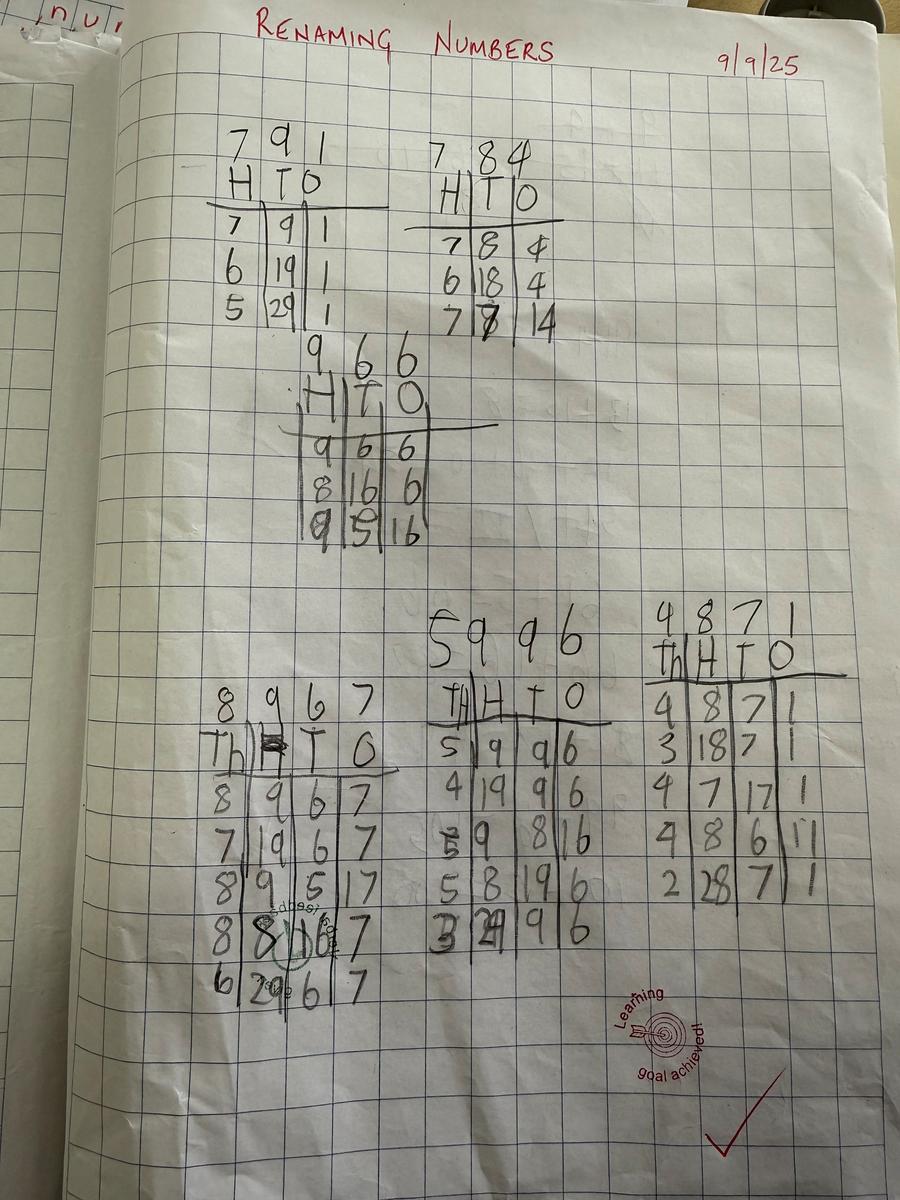 , n u r
RENAMING NUMBERS
9/9/25
7 9 1
H T O
7 9 1
6 19 1
5 29 1
7 8 4
H T O
7 8 4
6 18 4
7 7 14
9 6 6
H T O
9 6 6
8 16 6
9 5 16
8 9 6 7
Th H T O
8 9 6 7
7 19 6 7
8 9 5 17
8 8 16 7
6 29 6 7
5 9 9 6
TH H T O
5 9 9 6
4 19 9 6
5 9 8 16
5 8 19 6
3 29 9 6
4 8 7 1
Th H T O
4 8 7 1
3 18 7 1
4 7 17 1
4 8 6 11
2 28 7 1
Learning
goal achieved!